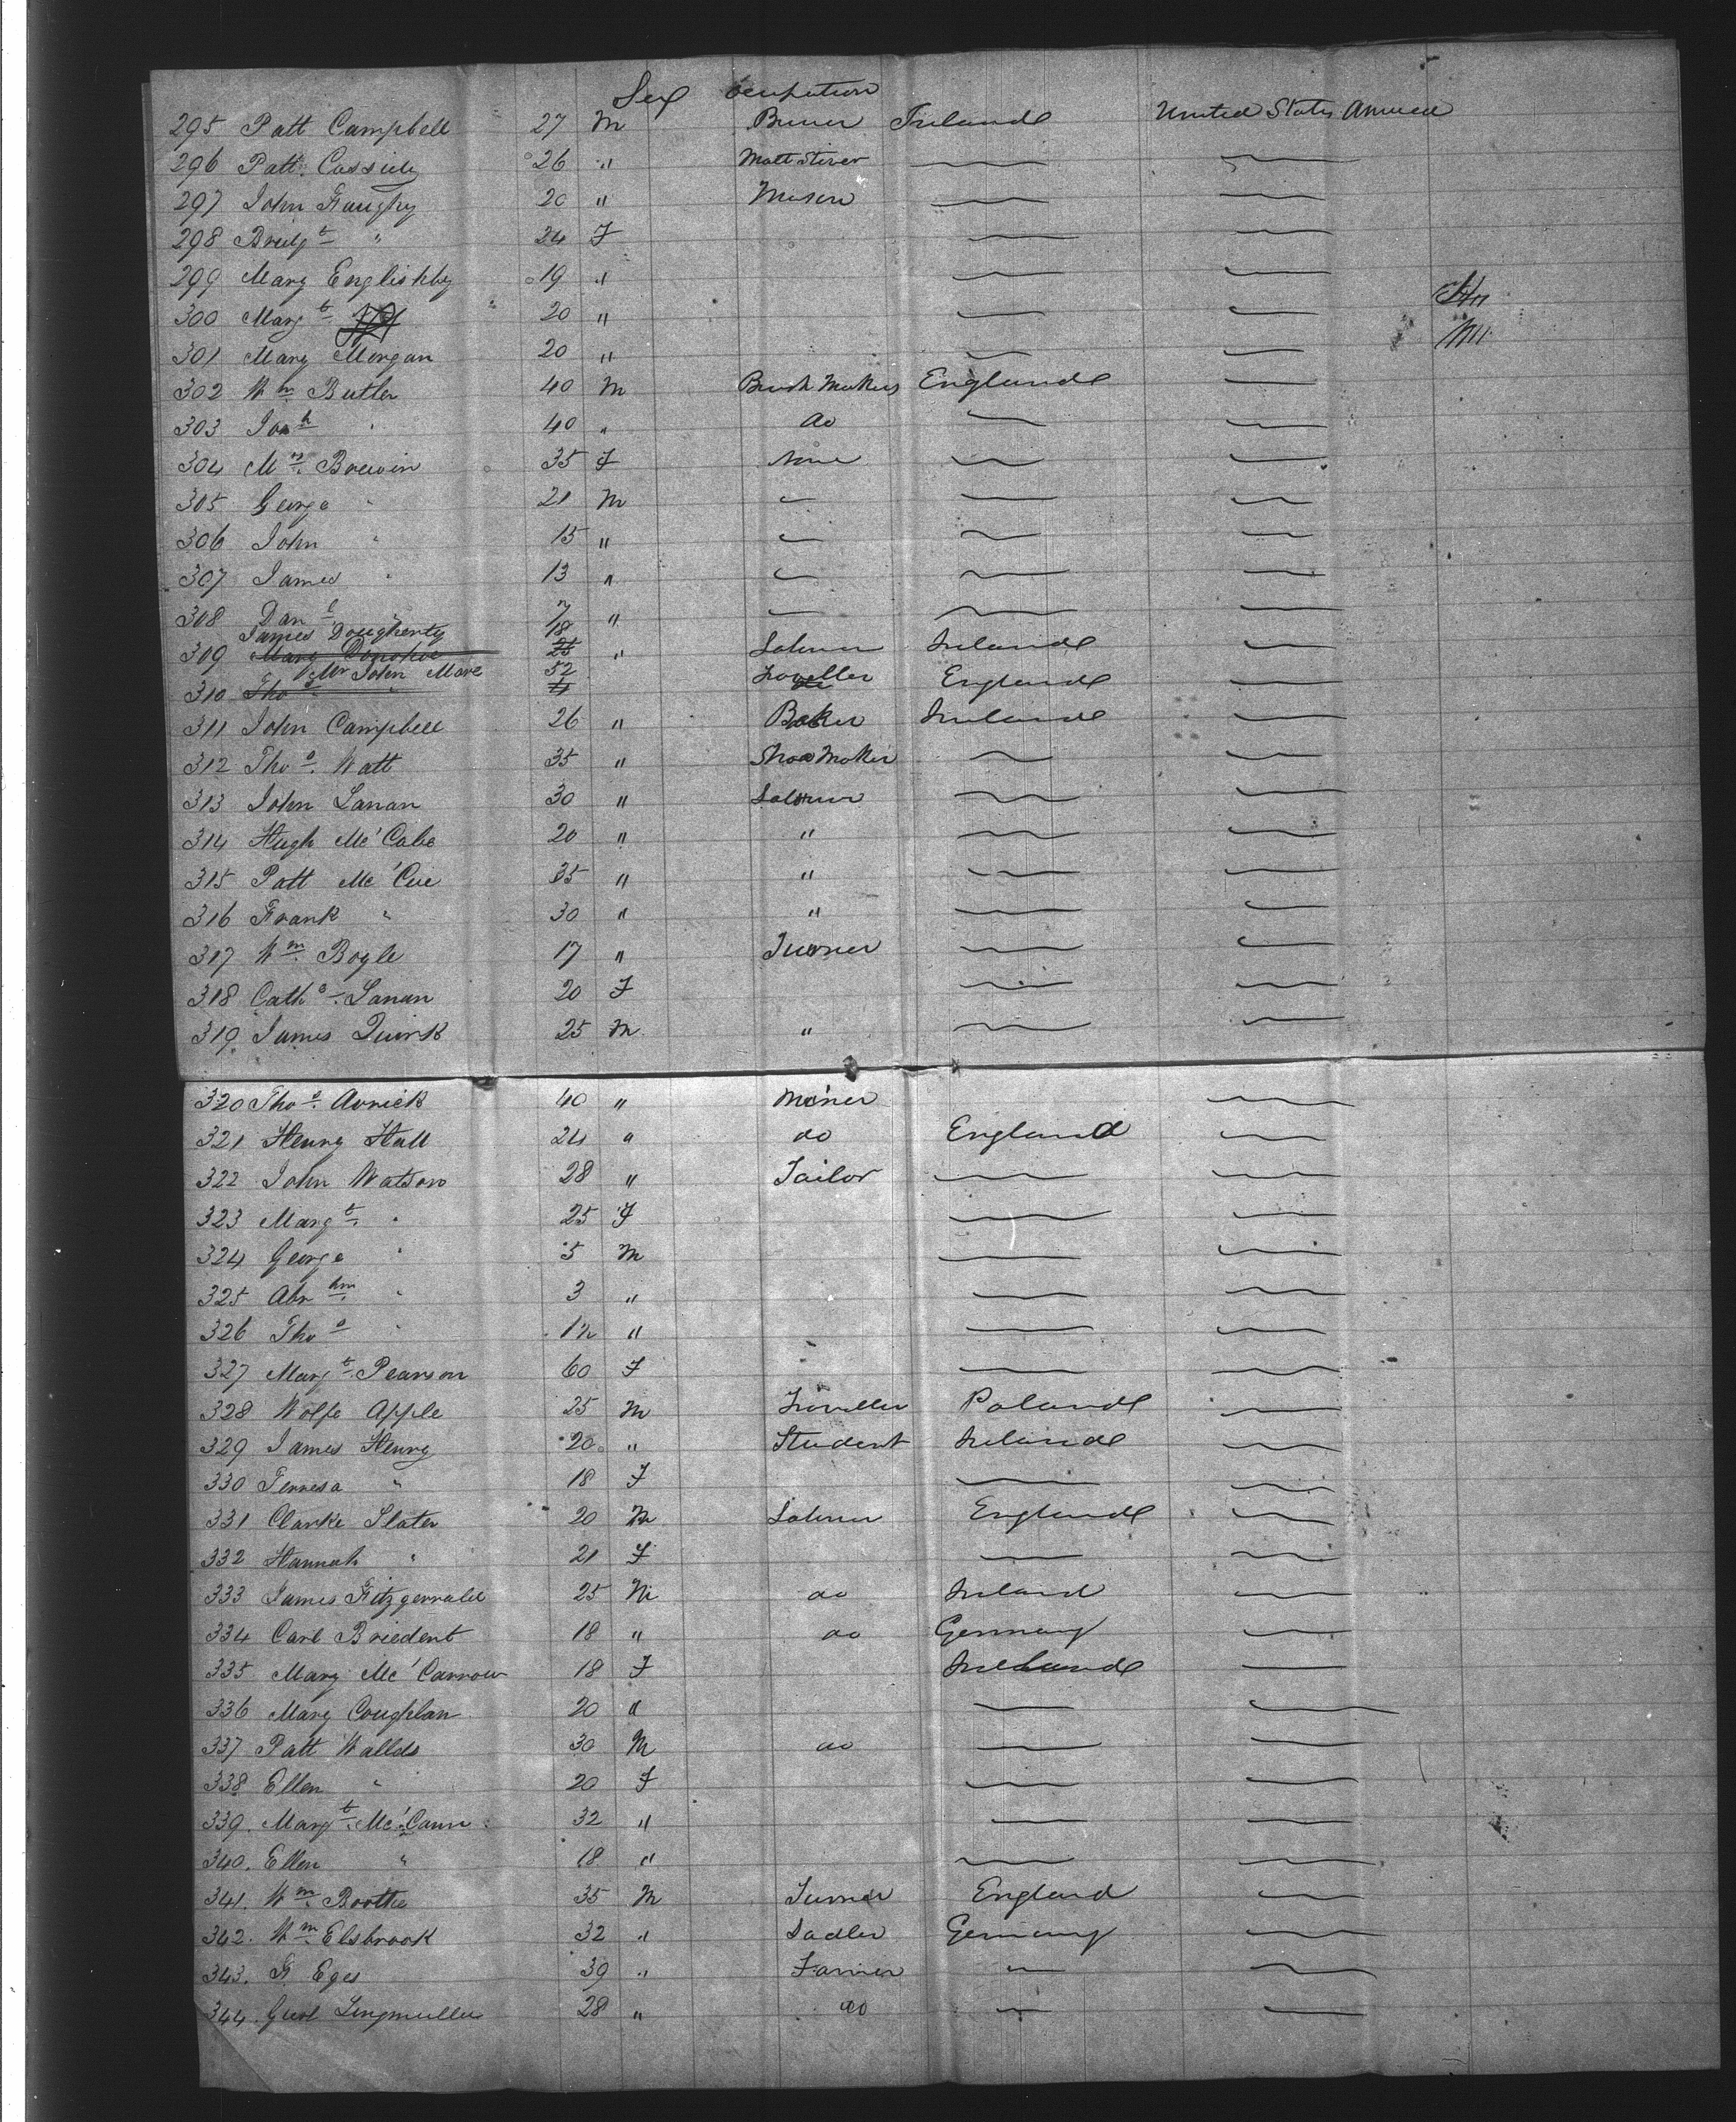 Sex Occupation
295 Patt Campbell 27 M Ireland United States
296 Patt. Cassidy 26 " Matt Stirer
297 John Haughy 20 " Mason
298 Bridgt " 24 F
299 Mary Englishby 19 "
300 Margt 20 "
301 Mary Morgan 20 "
302 Wm. Butler 40 M Brush Makers England
303 40 " do
304 Mrs. Brewin 35 F None
305 George " 21 M
306 John " 15 "
307 James " 13 "
308 Danl " 7 "
James Dougherty 18
309 Mary Donohoe 25 " Labourer Ireland
Mr John More 52
310 Thos " Traveller England
311 John Campbell 26 " Baker Ireland
312 Thos. Watt 35 " Shoe Maker
313 John Lanan 30 " Labourer
314 Hugh Mc'Cabe 20 " "
315 Patt Mc'Cue 35 " "
316 Frank " 30 " "
317 Wm. Boyle 17 "
318 Cathe. Lanan 20 F
319 James Quirk 25 M "
320 Thos. Avrick 40 " Miner
321 Henry Hall 24 " do England
322 John Watson 28 " Tailor
323 Margt. " 25 F
324 George " 5 M
325 Abrhm. " 3 "
326 Thos " "
327 Margt. Pearson 60 F
328 Wolfe Apple 25 M Traveller Poland
329 James Henry 20 " Student Ireland
330 Terresa " 18 F
331 Clarke Slater 20 M Labourer England
332 Hannah " 21 F
333 James Fitzgerrald 25 M do Ireland
334 Carl Briedent 18 " do Germany
335 Mary Mc'Carrow 18 F Ireland
336 Mary Coughlan 20 "
337 Patt Wallds 30 M do
338 Ellen " 20 F
339. Margt. Mc'Cann 32 "
340. Ellen " 18 "
341. Wm. Boothe 35 M England
342. Wm. Elsbrook 32 " Sadler Germany
343. F. Eges 39 " Farmer
344. Gust Lingmuller 28 " do